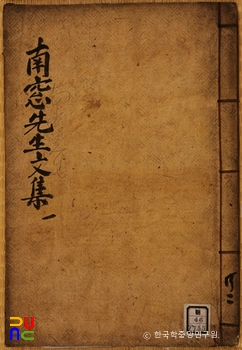 南窓先生文集 一
ⓒ 한국학중앙연구원